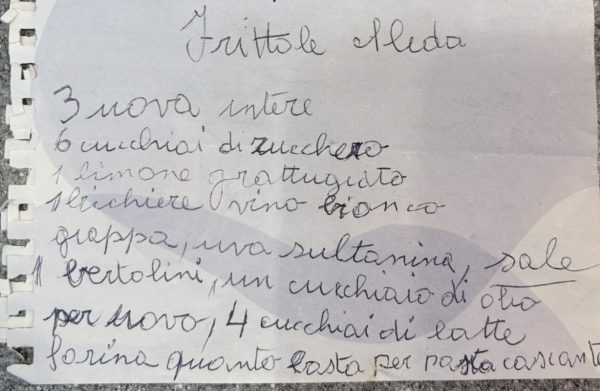 Frittole Meda
3 uova intere
6 cucchiai di zucchero
1 limone grattugiato
1 bicchiere vino bianco
grappa, uva sultanina, sale
1 bertolini, un cucchiaio di olio
per uovo, 4 cucchiai di latte
farina quanto basta per pasta cascante